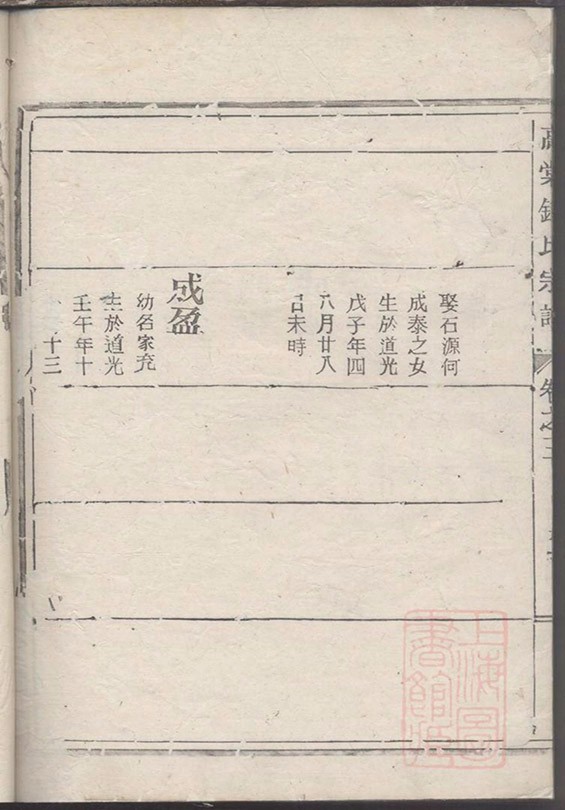 娶石源何
成泰之女
生於道光
戊子年四
月廿八
日未時
成盈
幼名家充
生於道光
壬午年十
十三
氏宗譜
卷之三
上海圖
書館藏